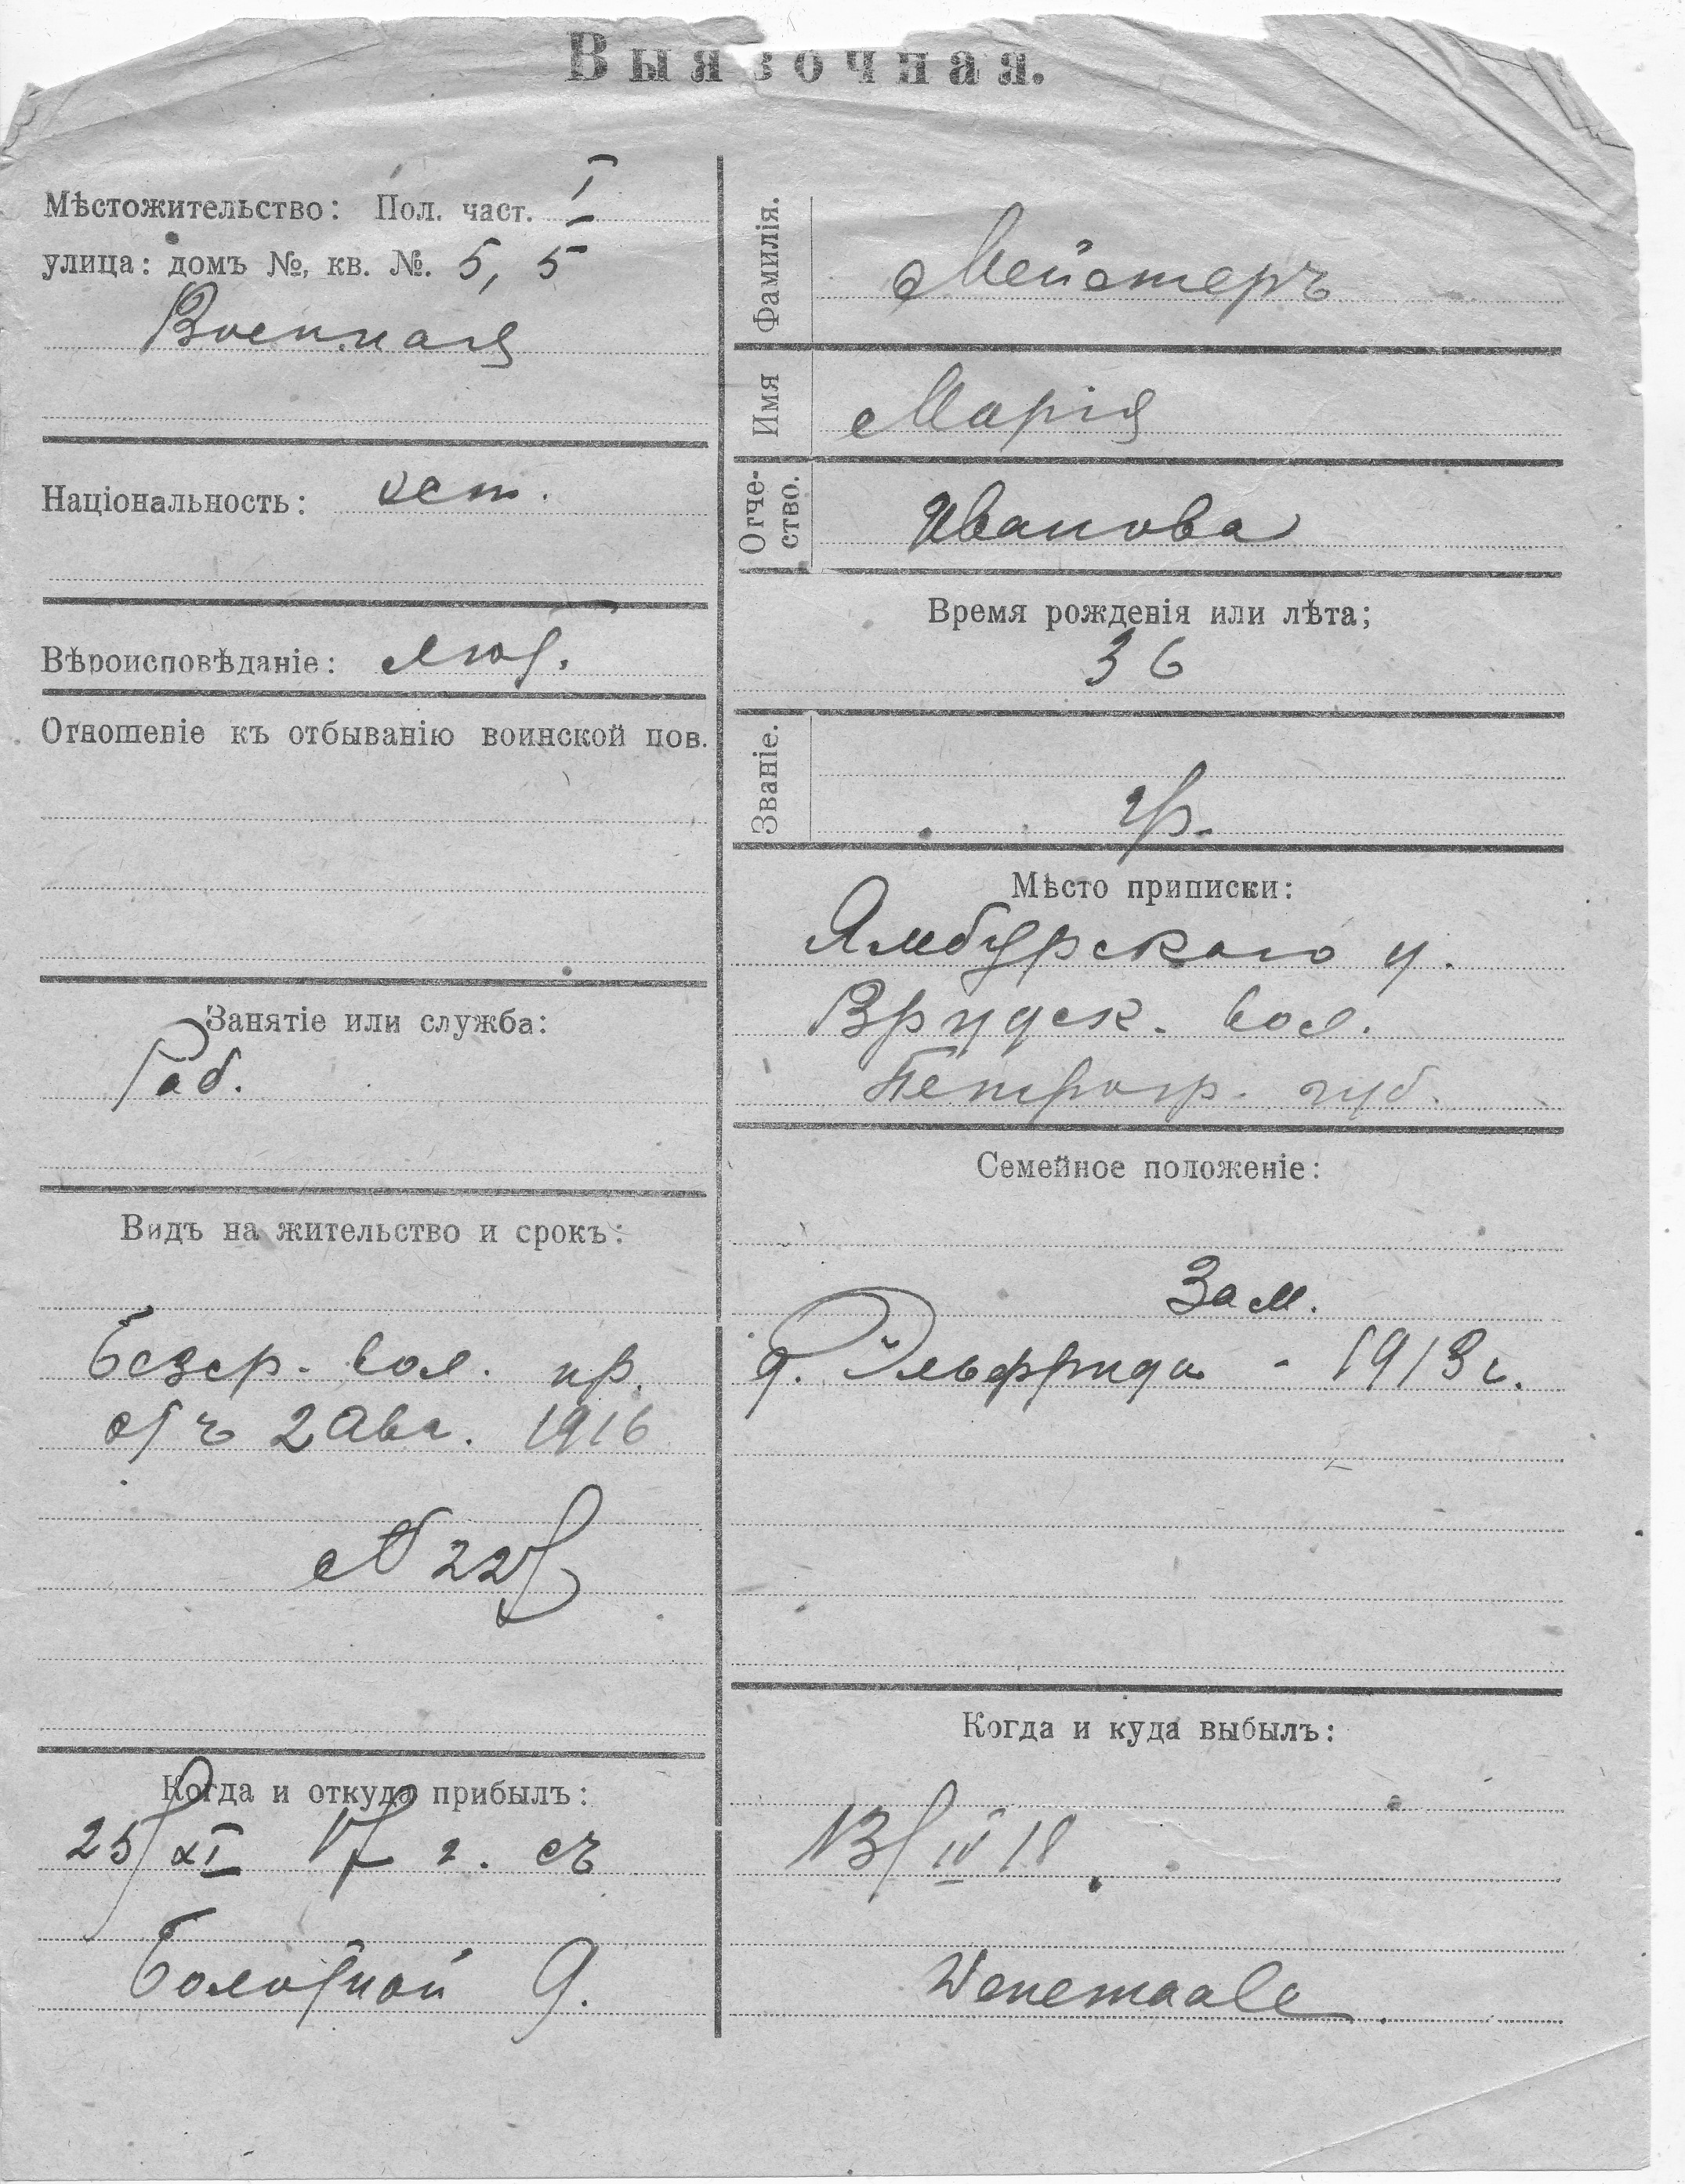 Выявочная.
Мѣстожительство: Пол. част. I
улица: домъ №, кв. №. 5, 5
Военная
Національность: эст.
Вѣроисповѣданіе: Лют.
Отношеніе къ отбыванію воинской пов.
Занятіе или служба:
Раб.
Видъ на жительство и срокъ:
безср. вол. пр.
отъ 2 Авг. 1916
№ 22
Когда и откуда прибылъ:
25/XI 17 г. съ
Болотной 9.
Фамилія. Мейстеръ
Имя Марія
Отче-ство. Иванова
Время рожденія или лѣта;
36
Званіе.
гр.
Мѣсто приписки:
Ямбургскаго у.
Врудск. вол.
Петрогр. губ.
Семейное положеніе:
Зам.
д. Эльфрида - 1913 г.
Когда и куда выбылъ:
13/IV 18.
Wenemaale